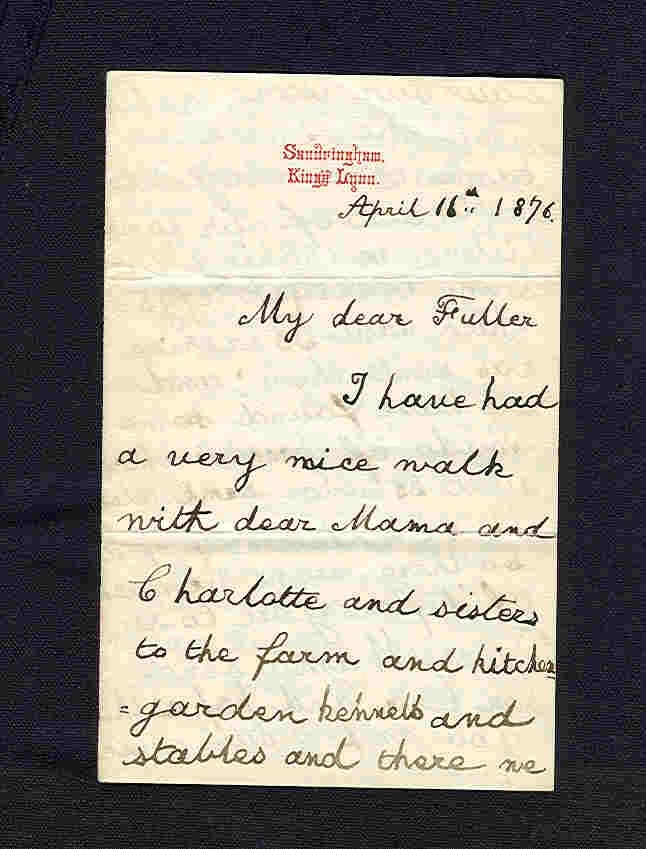 Sandringham,
King's Lynn.
April 16th 1876.
My dear Fuller
I have had
a very nice walk
with dear Mama and
Charlotte and sisters
to the farm and kitchen
=garden kennels and
stables and there we